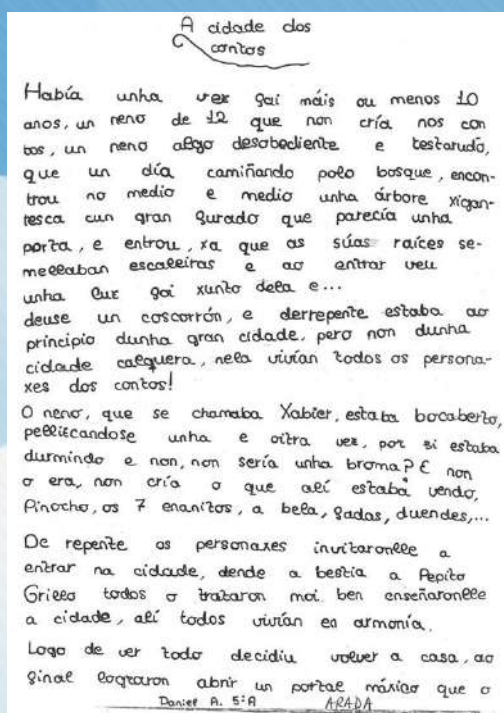 A cidade dos
contos
Había unha vez gai máis ou menos 10
anos, un neno de 12 que non cría nos con
tos, un neno algo desobediente e testarudo,
que un día camiñando polo bosque, encon-
trou no medio e medio unha árbore xigan-
tesca cun gran gurado que parecía unha
porta, e entrou, xa que as súas raíces se-
mellaban escaleiras e ao entrar veu
unha luz goi xunto dela e...
deuse un coscorrón, e derrepente estaba ao
principio dunha gran cidade, pero non dunha
cidade calquera, nela vivían todos os persona-
xes dos contos!
O neno, que se chamaba Xabier, estaba bocaberto,
pellizcandose unha e oitra vez, por si estaba
durmindo e non, non sería unha broma? E non
o era, non cría o que alí estaba vendo,
Pinocho, os 7 enanitos, a bela, gadas, duendes,...
De repente os personaxes invitaronlle a
entrar na cidade, dende a bestia a Pepito
Grillo todos o trataron moi ben enseñaronlle
a cidade, alí todos vivían en armonía.
Logo de ver todo decidiu volver a casa, ao
ginal lograron abrir un portal máxico que o
Daniel A. 5ºA ARADA